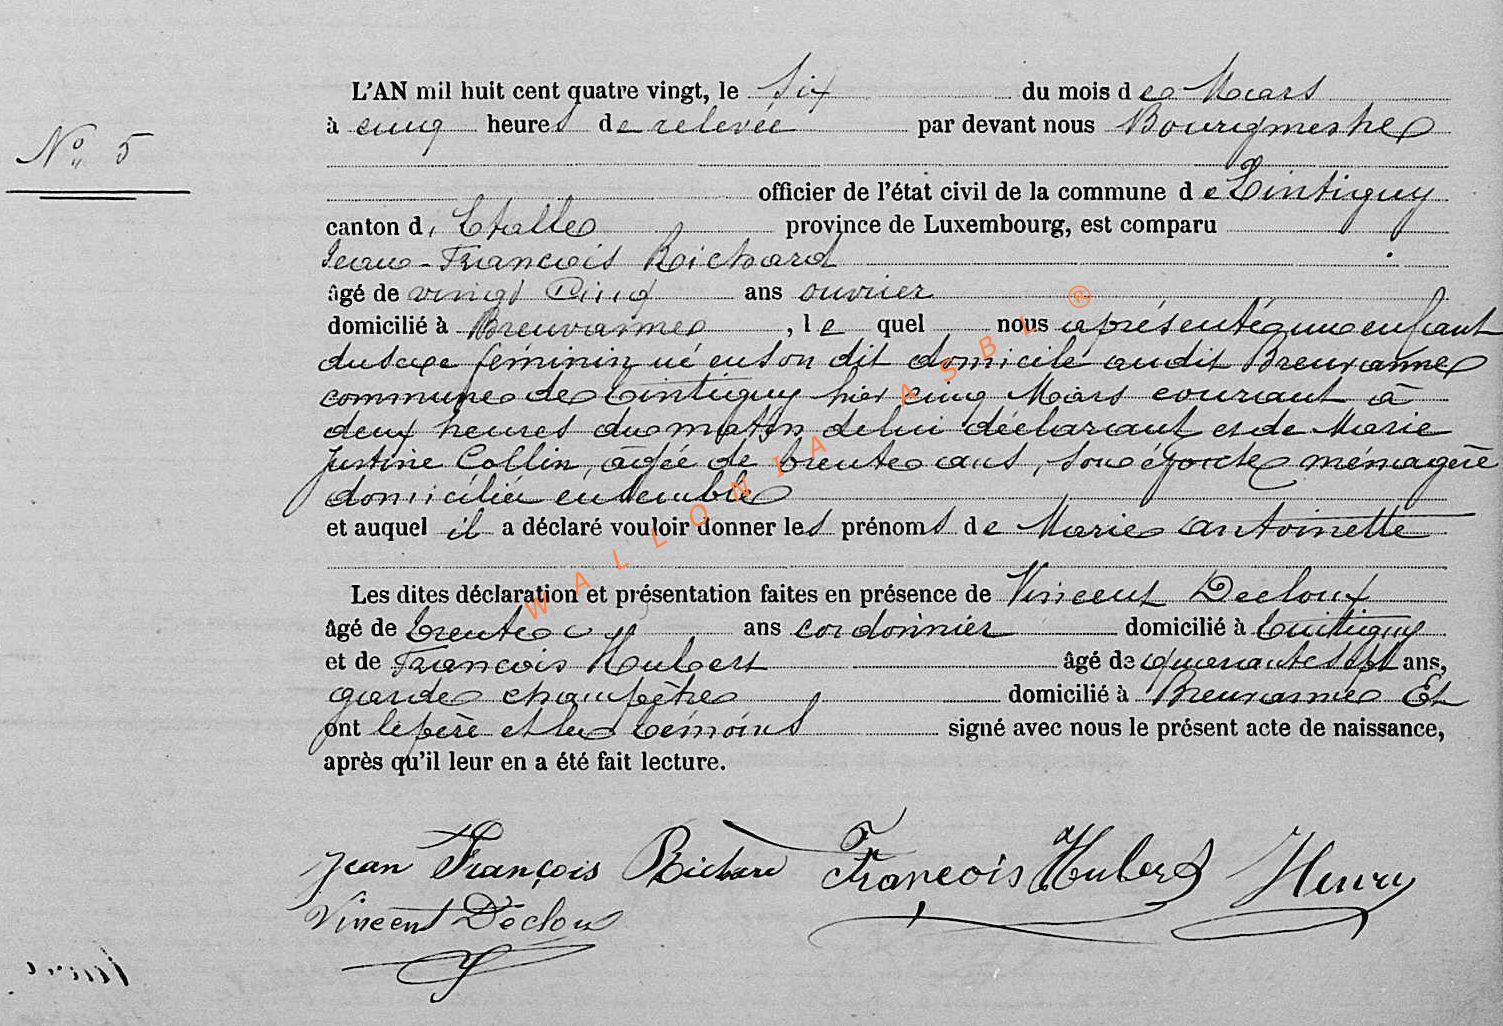 L'AN mil huit cent quatre vingt, le Six du mois de Mars
N° 5
à cinq heures de relevée par devant nous Bourgmestre
officier de l'état civil de la commune de Tintigny
canton d' Etalle province de Luxembourg, est comparu
Jean-François Richard
âgé de vingt Cinq ans ouvrier
domicilié à Breuvanne, le quel nous a présenté un enfant
du sexe féminin né en son dit domicile audit Breuvanne
commune de Tintigny hier cinq Mars courant à
deux heures du matin de lui déclarant et de Marie
Justine Collin, agée de trente ans, son épouse ménagère
domiciliée ensemble
et auquel il a déclaré vouloir donner les prénoms de Marie antoinette
Les dites déclaration et présentation faites en présence de Vincent Decloux
âgé de trente ans cordonnier domicilié à Tintigny
et de François Hubert âgé de quarante sept ans,
garde champêtre domicilié à Breuvanne Et
ont le père et les témoins signé avec nous le présent acte de naissance,
après qu'il leur en a été fait lecture.
Jean François Richard François Hubert Henry
Vincent Decloux
WALLONIA ASBL ®